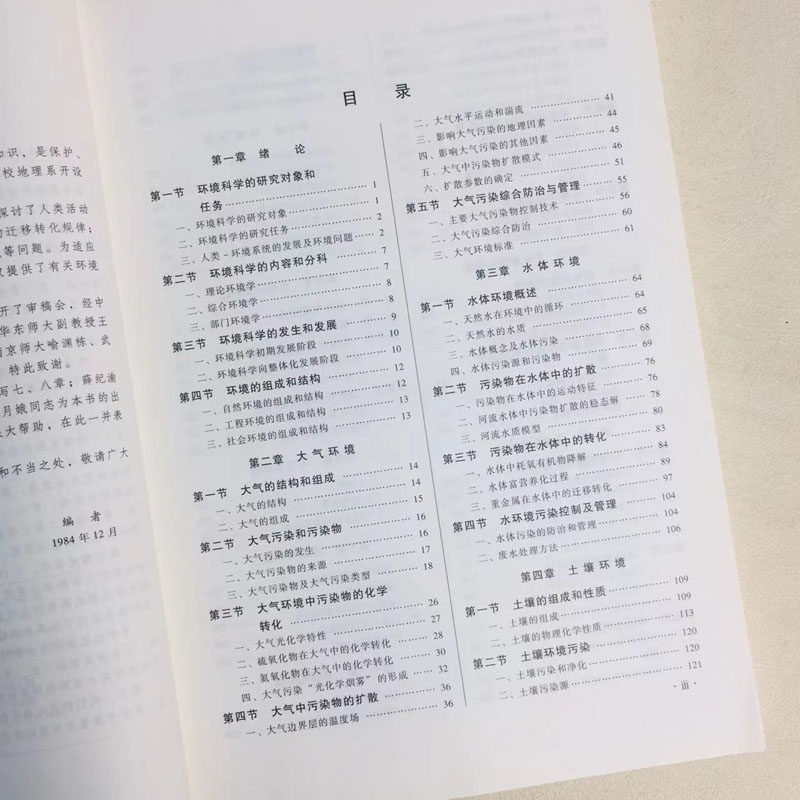 知识，是保护、
校地理系开设
探讨了人类活动
迁移转化规律；
等问题。为适应
提供了有关环境
开了审稿会，经中
华东师大副教授王
南京师大喻渊栋、武
特此致谢。
写七、八章；薛纪渝
月娥同志为本书的出
大帮助，在此一并表
和不当之处，敬请广大
编 者
1984 年 12 月
目 录
第一章 绪 论
第一节 环境科学的研究对象和
任务 …… 1
一、环境科学的研究对象 …… 1
二、环境科学的研究任务 …… 2
三、人类－环境系统的发展及环境问题 …… 2
第二节 环境科学的内容和分科 …… 7
一、理论环境学 …… 7
二、综合环境学 …… 8
三、部门环境学 …… 8
第三节 环境科学的发生和发展 …… 9
一、环境科学初期发展阶段 …… 10
二、环境科学向整体化发展阶段 …… 10
第四节 环境的组成和结构 …… 12
一、自然环境的组成和结构 …… 12
二、工程环境的组成和结构 …… 13
三、社会环境的组成和结构 …… 13
第二章 大气环境
第一节 大气的结构和组成 …… 14
一、大气的结构 …… 14
二、大气的组成 …… 15
第二节 大气污染和污染物 …… 16
一、大气污染的发生 …… 16
二、大气污染物的来源 …… 17
三、大气污染物及大气污染类型 …… 18
第三节 大气环境中污染物的化学
转化 …… 26
一、大气光化学特性 …… 27
二、硫氧化物在大气中的化学转化 …… 28
三、氮氧化物在大气中的化学转化 …… 30
四、大气污染“光化学烟雾”的形成 …… 32
第四节 大气中污染物的扩散 …… 36
一、大气边界层的温度场 …… 36
二、大气水平运动和湍流 …… 41
三、影响大气污染的地理因素 …… 44
四、影响大气污染的其他因素 …… 45
五、大气中污染物扩散模式 …… 46
六、扩散参数的确定 …… 51
第五节 大气污染综合防治与管理 …… 55
一、主要大气污染物控制技术 …… 56
二、大气污染综合防治 …… 60
三、大气环境标准 …… 61
第三章 水体环境
第一节 水体环境概述 …… 64
一、天然水在环境中的循环 …… 64
二、天然水的水质 …… 65
三、水体概念及水体污染 …… 68
四、水体污染源和污染物 …… 68
第二节 污染物在水体中的扩散 …… 76
一、污染物在水体中的运动特征 …… 76
二、河流水体中污染物扩散的稳态解 …… 78
三、河流水质模型 …… 80
第三节 污染物在水体中的转化 …… 83
一、水体中耗氧有机物降解 …… 84
二、水体富营养化过程 …… 89
三、重金属在水体中的迁移转化 …… 97
第四节 水环境污染控制及管理 …… 104
一、水体污染的防治和管理 …… 104
二、废水处理方法 …… 106
第四章 土壤环境
第一节 土壤的组成和性质 …… 109
一、土壤的组成 …… 109
二、土壤的物理化学性质 …… 113
第二节 土壤环境污染 …… 120
一、土壤污染和净化 …… 120
二、土壤污染源 …… 121
· iii ·